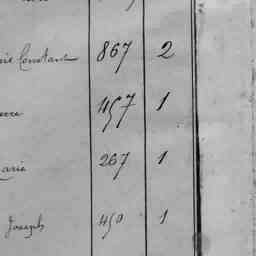 Constant 867 2
457 1
arie 267 1
Joseph 450 1